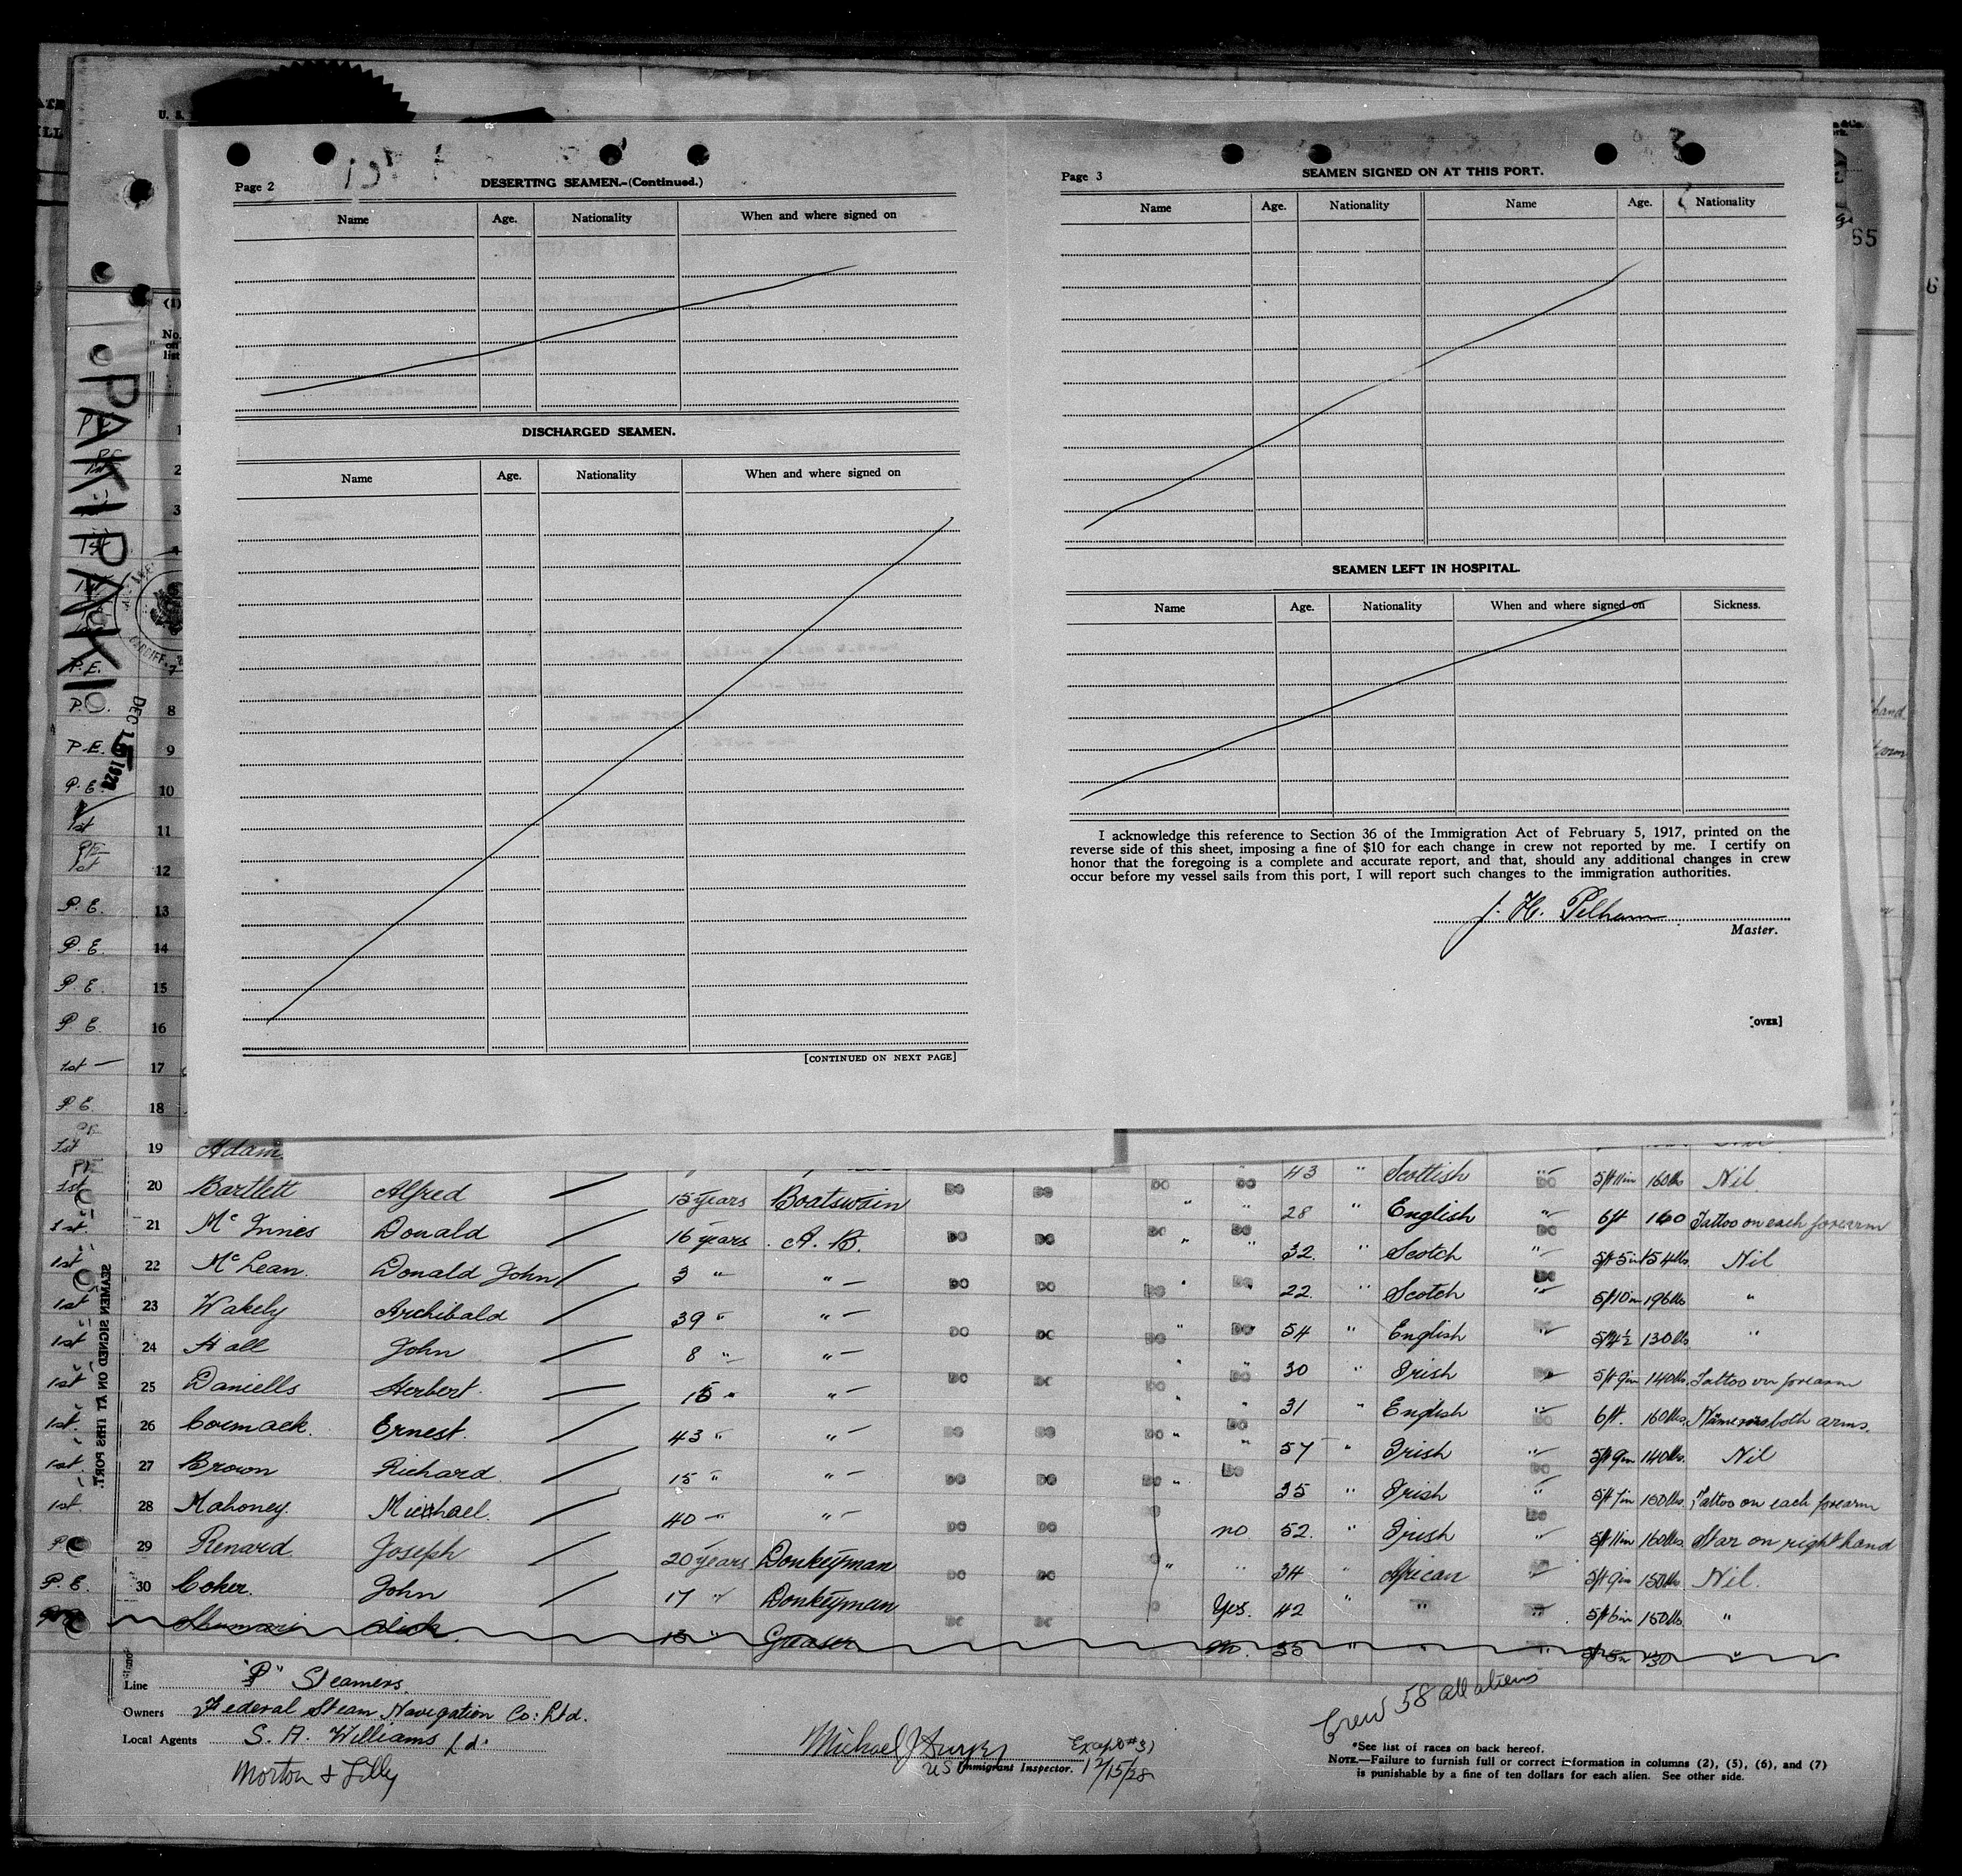 U. S.
Page 2
DESERTING SEAMEN.-(Continued.)
Name Age. Nationality When and where signed on
DISCHARGED SEAMEN.
Name Age. Nationality When and where signed on
[CONTINUED ON NEXT PAGE]
Page 3
SEAMEN SIGNED ON AT THIS PORT.
Name Age. Nationality Name Age. Nationality
SEAMEN LEFT IN HOSPITAL.
Name Age. Nationality When and where signed on Sickness.
I acknowledge this reference to Section 36 of the Immigration Act of February 5, 1917, printed on the
reverse side of this sheet, imposing a fine of $10 for each change in crew not reported by me. I certify on
honor that the foregoing is a complete and accurate report, and that, should any additional changes in crew
occur before my vessel sails from this port, I will report such changes to the immigration authorities.
J. H. Pelham
Master.
[OVER]
55
6
(1)
No. on list
PAKIPAKI
CARDIFF
DEC 15 192
1
2
3
1st 4
P.E. 7
8
P.E. 9
P.E. 10
1st 11
1st 12
P.E. 13
P.E. 14
P.E. 15
P.E. 16
1st 17
P.E. 18
1st 19 Adam
43 " Scottish DO 5ft 11in 160lbs Nil
1st 20 Bartlett Alfred 15 years Boatswain DO DO DO " DO 28 " English DO 6ft 160 Tattoo on each forearm
1st 21 McInnes Donald 16 years A.B. DO DO DO " " 32 " Scotch DO 5ft 5in 154lbs Nil
1st 22 McLean Donald John 3 " " DO DO DO " DO 22 " Scotch DO 5ft 10in 196lbs "
1st 23 Wakely Archibald 39 " " DO DO DO " DO 54 " English DO 5ft 4½ 130lbs "
1st 24 Hall John 8 " " DO DO DO " DO 30 " Irish DO 5ft 9in 140lbs Tattoo on forearm
1st 25 Daniells Herbert 15 " " DO DO DO " DO 31 " English DO 6ft. 160lbs both arms.
1st 26 Cormack Ernest 43 " " DO DO DO " DO 57 " Irish DO 5ft 9in 140lbs Nil
1st 27 Brown Richard 15 " " DO DO DO " DO 35 " Irish DO 5ft 7in 150lbs Tattoo on each forearm
1st 28 Mahoney Michael 40 " " DO DO no 52 " Irish DO 5ft 11in 160lbs Star on right hand
29 Renard Joseph 20 years Donkeyman DO DO " " 34 " African " 5ft 9in 150lbs Nil.
P.E. 30 Coker John 17 " Donkeyman DO DO Yes. 42 " " " 5ft 6in 150lbs "
Alick 13 " Greaser no. 35 " " " 5ft 5in 130 "
SEAMEN SIGNED ON AT THIS PORT.
Line "P" Steamers.
Owners Federal Steam Navigation Co: Ltd.
Local Agents S. A. Williams Ld.
Morton & Lilly
Michael J
US Immigrant Inspector.
Except #31
12/15/28
Crew 58 all aliens
*See list of races on back hereof.
NOTE.—Failure to furnish full or correct information in columns (2), (5), (6), and (7)
is punishable by a fine of ten dollars for each alien. See other side.